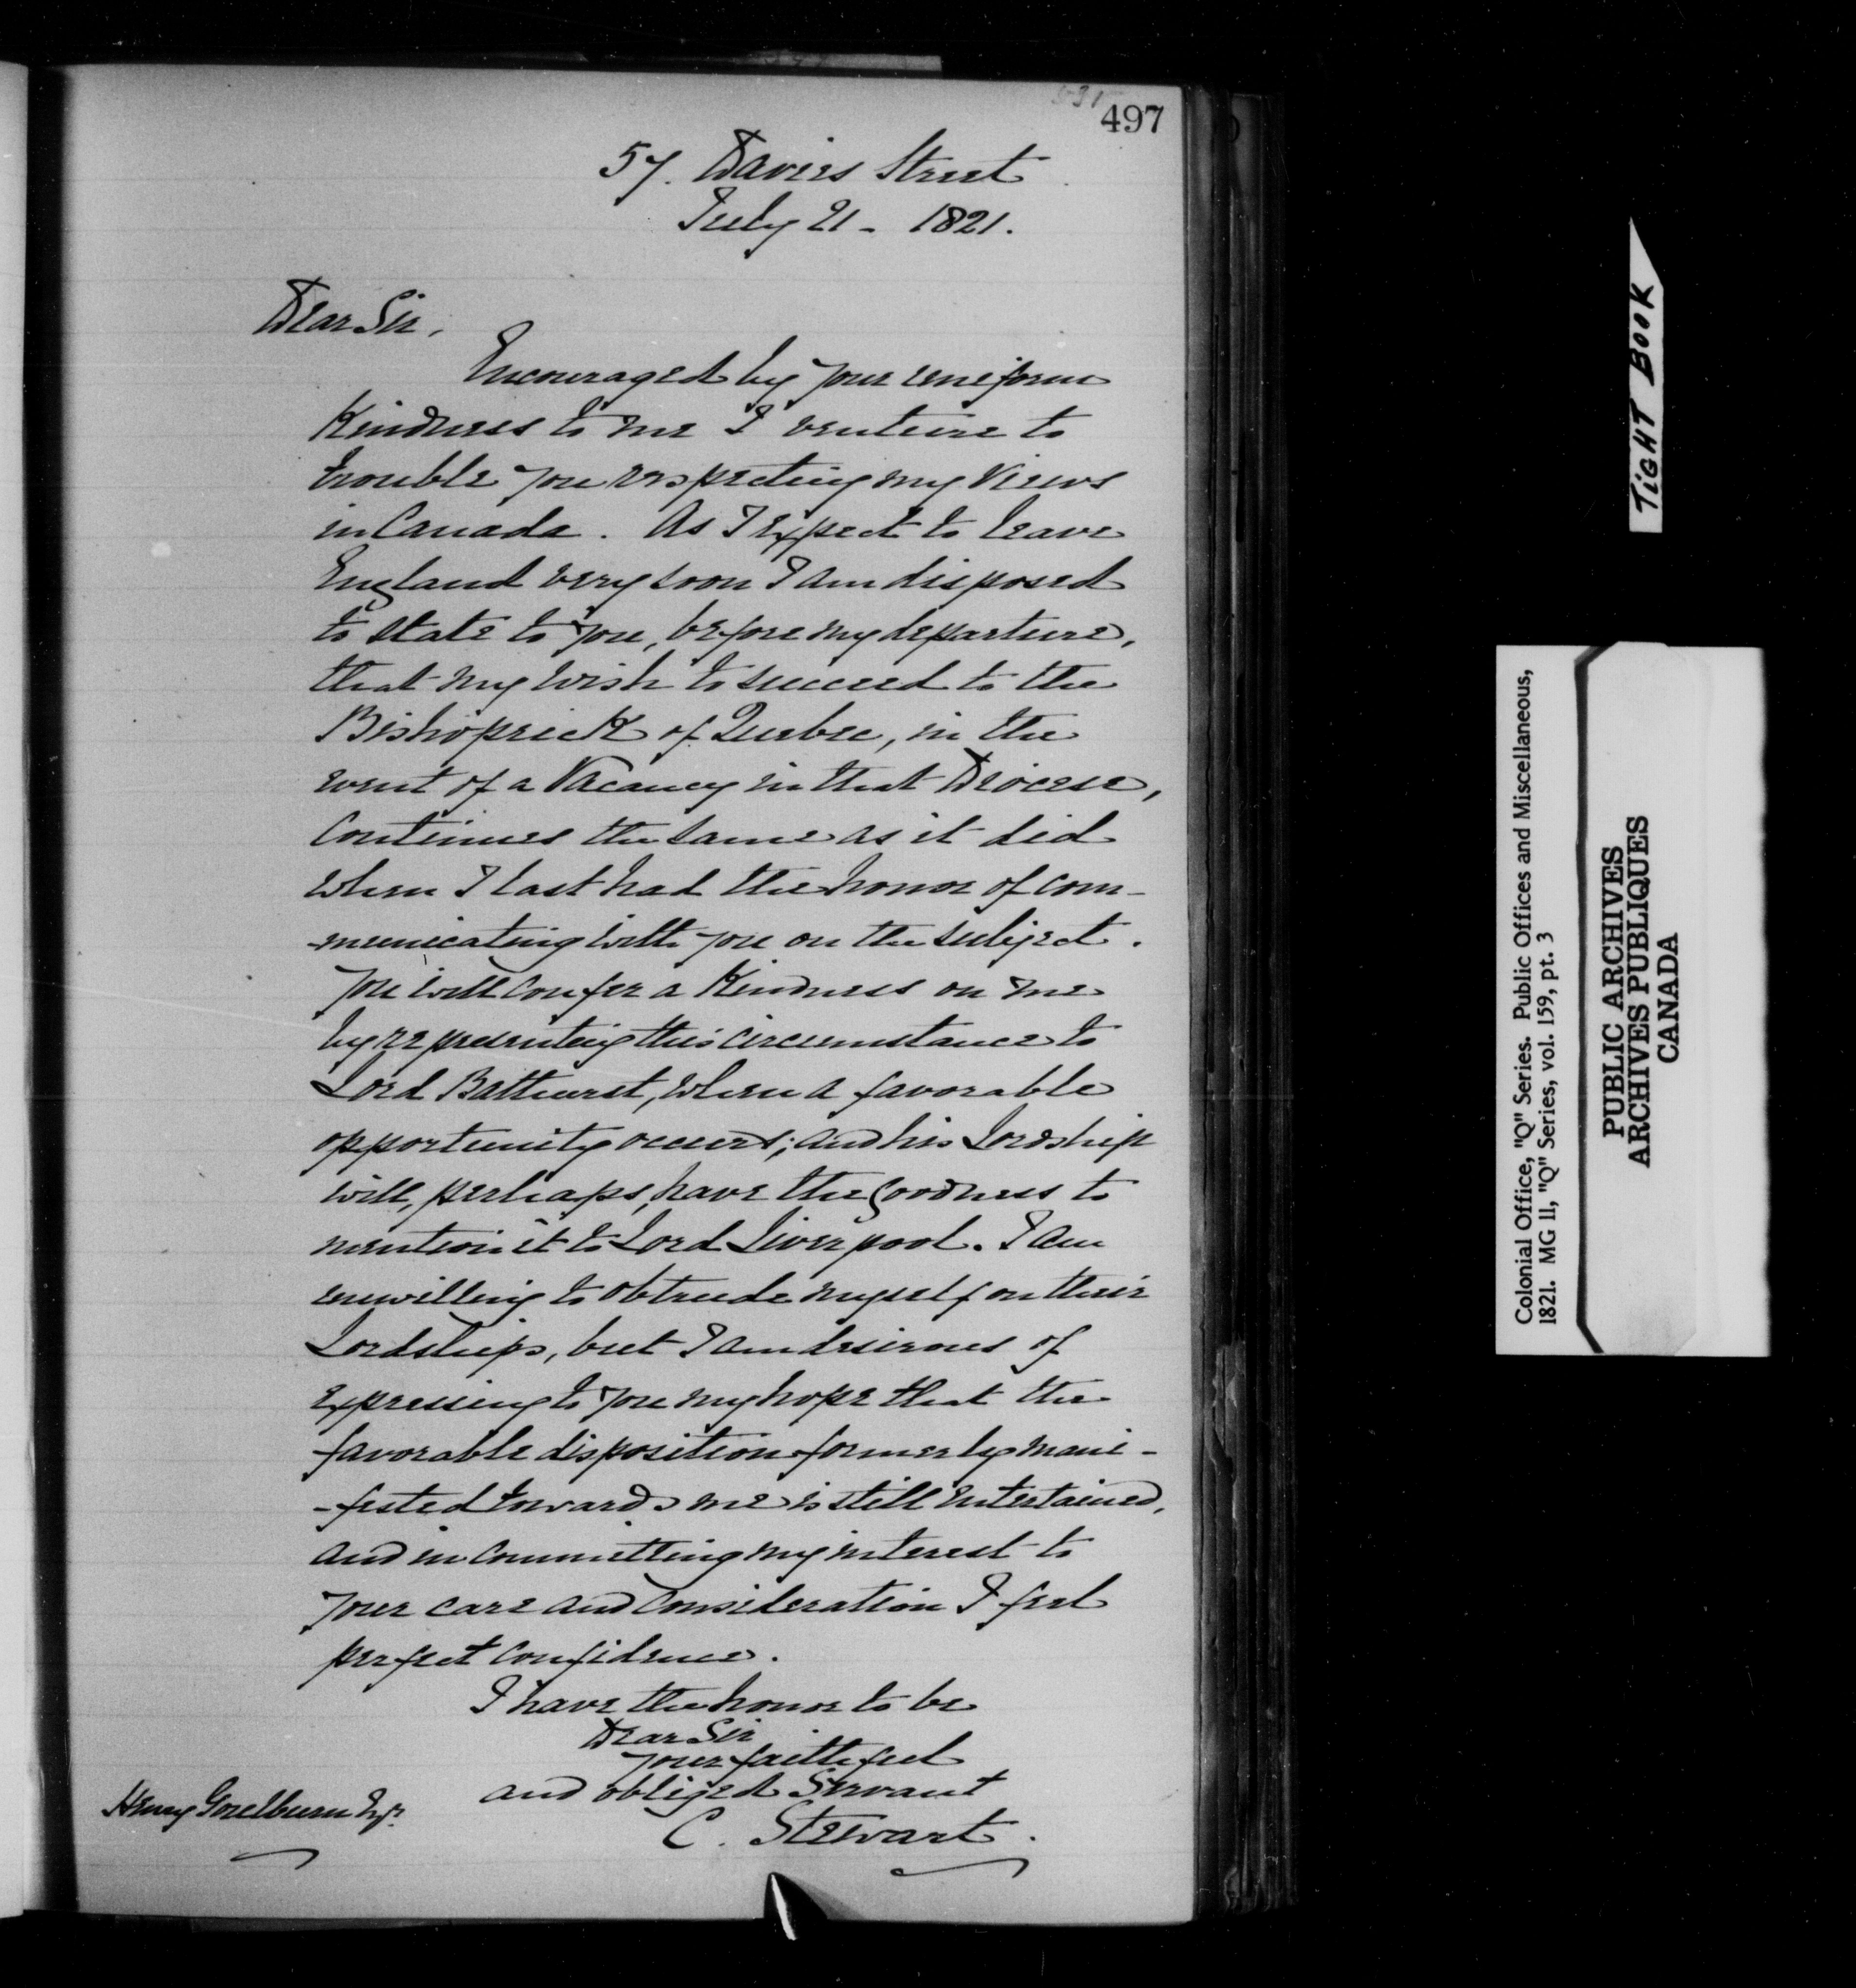 497
57. Davies Street
July 21 - 1821.
Dear Sir,
Encouraged by your uniform
Kindness to me I venture to
trouble you respecting my views
in Canada. As I expect to leave
England very soon I am disposed
to state to you, before my departure,
that my wish to succeed to the
Bishoprick of Quebec, in the
event of a Vacancy in that Diocese,
Continues the same as it did
when I last had the honor of com-
-municating with you on the subject.
You will confer a Kindness on me
by representing this circumstance to
Lord Bathurst, when a favorable
opportunity occurs; and his Lordship
will, perhaps, have the goodness to
mention it to Lord Liverpool. I am
unwilling to obtrude myself on their
Lordships, but I am desirous of
expressing to you my hope that the
favorable disposition formerly mani-
-fested towards me is still entertained,
and in committing my interest to
your care and consideration I feel
perfect confidence.
I have the honor to be
Dear Sir
your faithful
and obliged Servant
C. Stewart.
Henry Goulburn Esqr.
TIGHT BOOK
Colonial Office, "Q" Series. Public Offices and Miscellaneous,
1821. MG 11, "Q" Series, vol. 159, pt. 3
PUBLIC ARCHIVES
ARCHIVES PUBLIQUES
CANADA